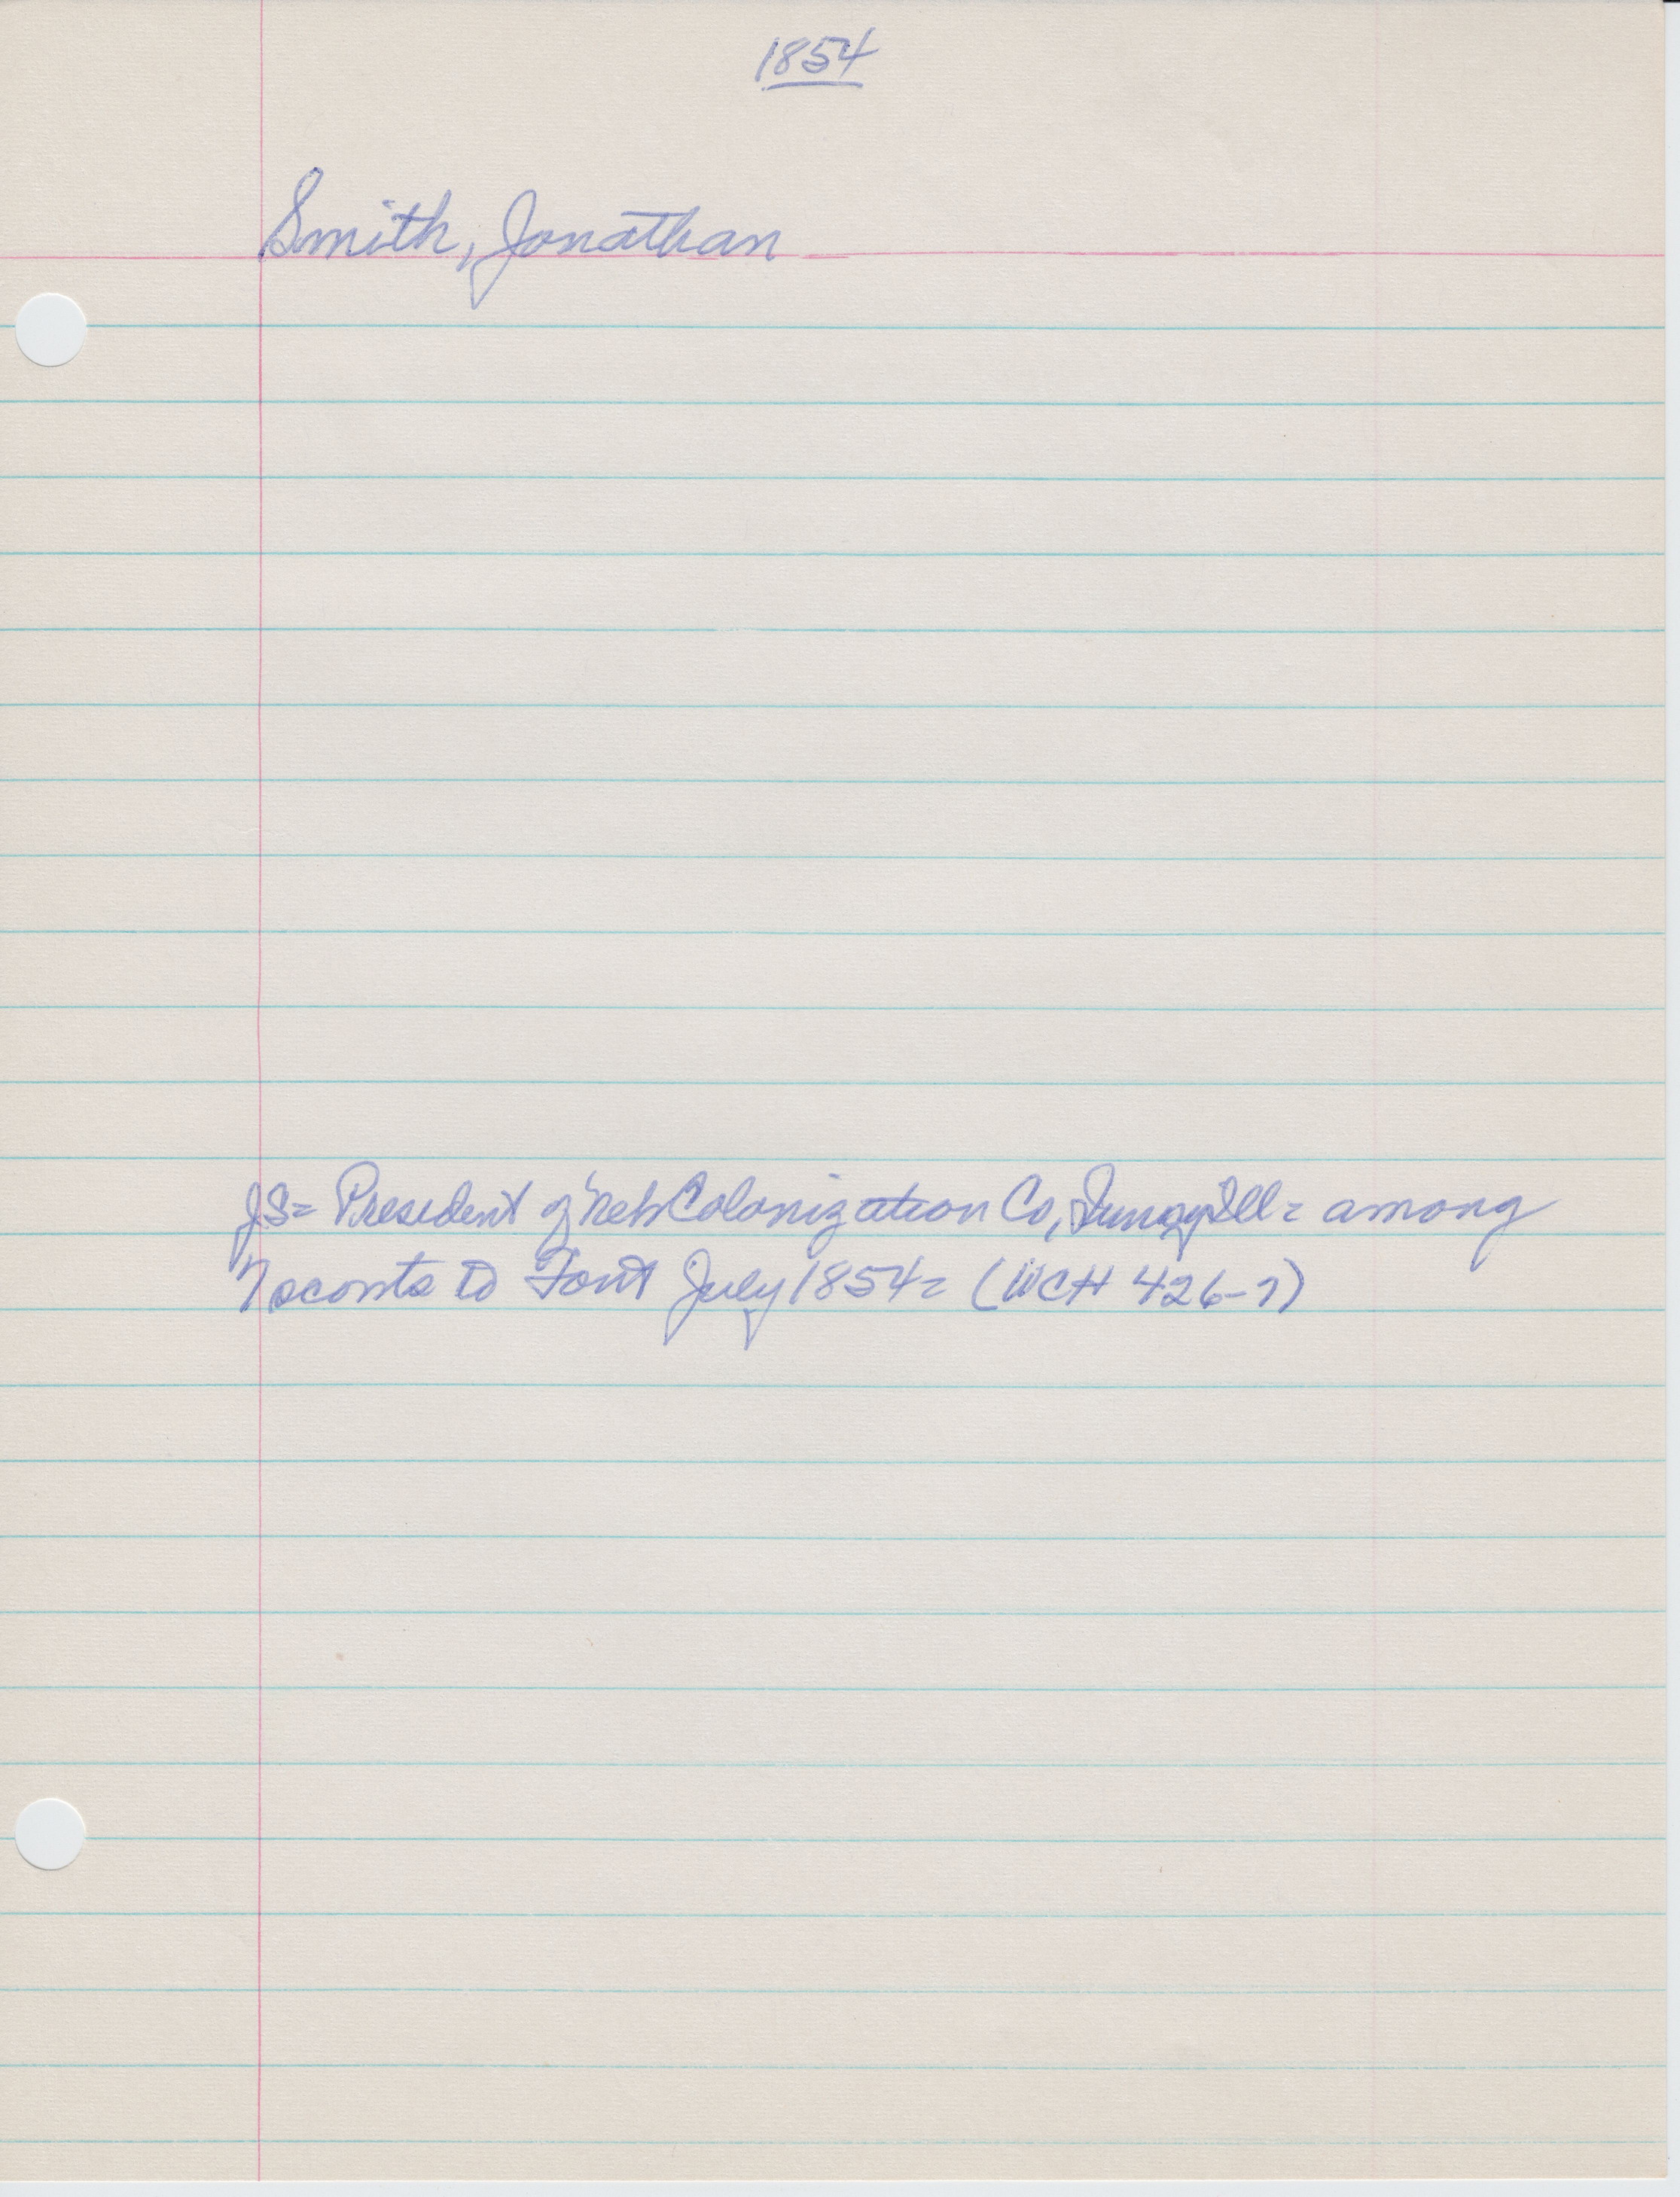 1854
Smith, Jonathan
JS = President of Neb Colonization Co, Ill = among
7 scouts to Font July 1854 = (WCH 426-7)